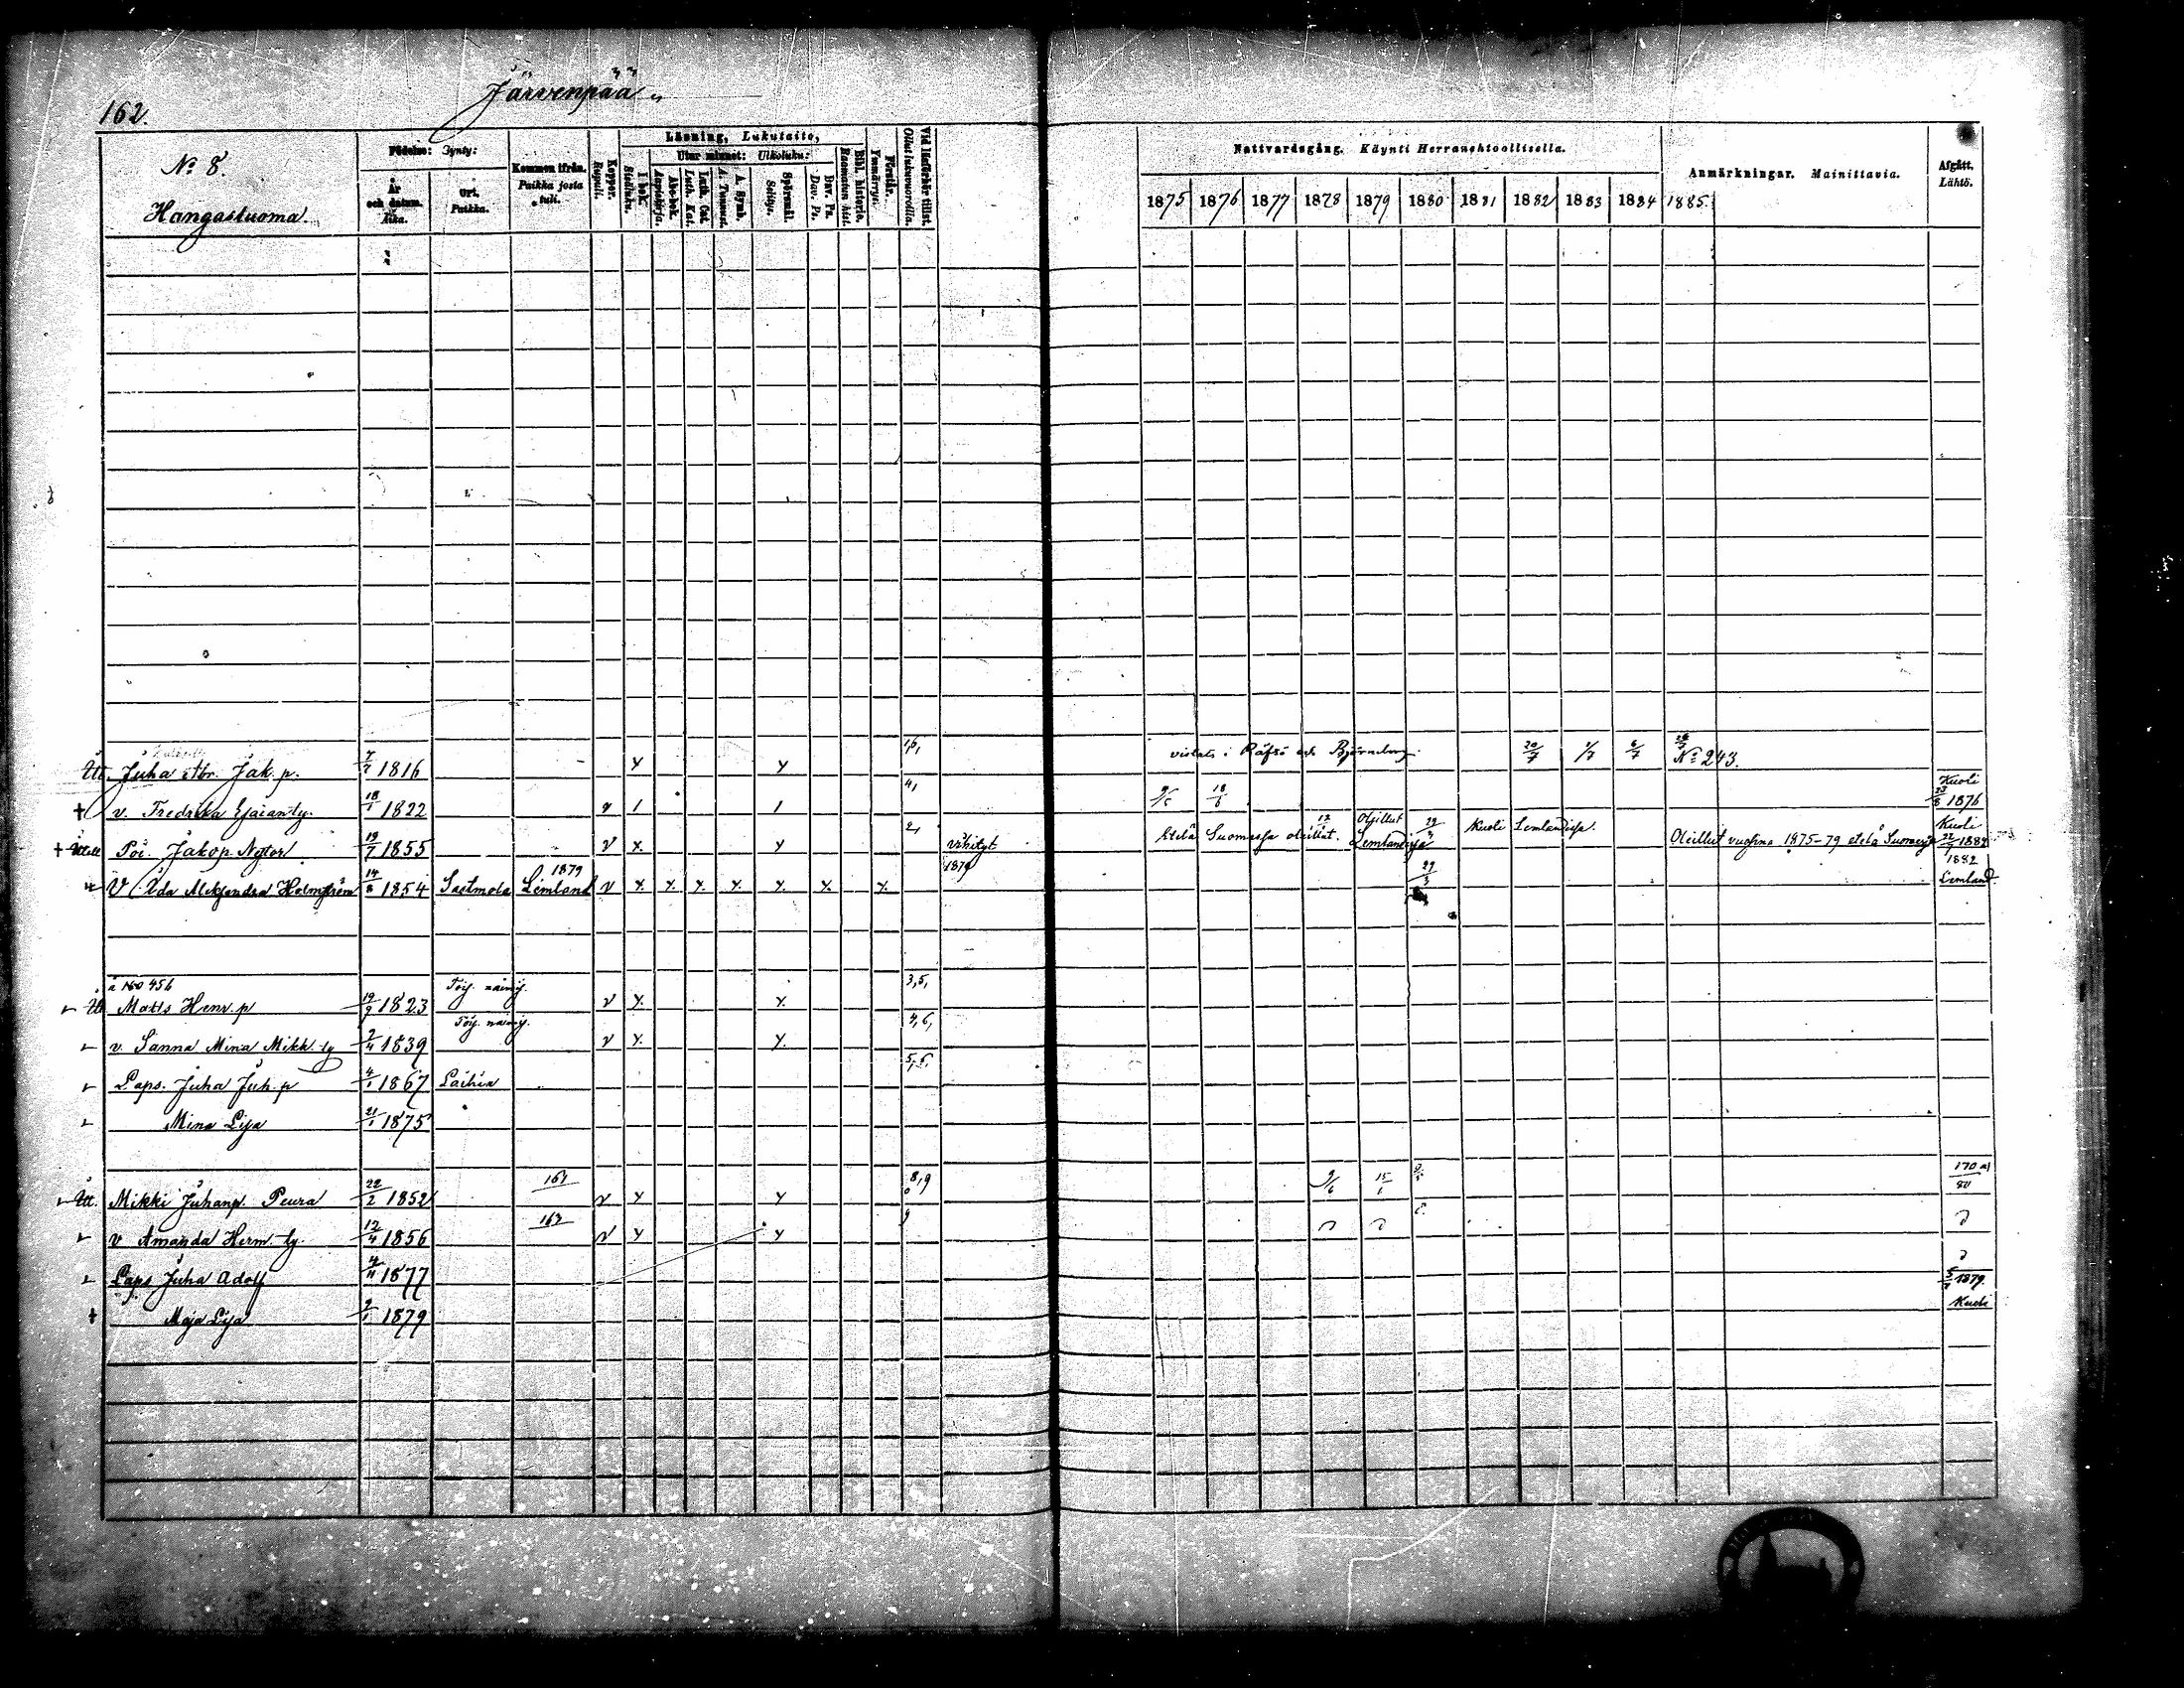 162.
Järvenpää
No 8.
Hangasluoma.
Födelse: Synty:
År och datum. Aika.
Ort. Paikka.
Kommen ifrån. Paikka josta tuli.
Koppor. Rupuli.
Läsning, Lukutaito,
I bok. Sisäluku.
Utur minnet: Ulkoluku:
Abc-bok. Aapiskirja.
Luth. Cat. Luth. Kat.
A. Symb. A. Tunnust.
Spörsmål. Selitys.
Dav. Ps. Dav. Ps.
Bibl. historie. Raamatun hist.
Förstår. Ymmärrys.
Vid läsförhör tillst. Ollut lukuvuorolla.
Nattvardsgång. Käynti Herranehtoollisella.
1875 1876 1877 1878 1879 1880 1881 1882 1883 1884 1885
Anmärkningar. Mainittavia.
Afgått. Lähtö.
Itt. Juha Abr. Jak. p. 7/7 1816 vistats i Räfsö och Björneborg. 20/7 6/7 No 243.
v. Fredrika 18/1 1822 1 1 4, 18/6 Kuoli 23/8 1876
Poi. Jakop Nytor 19/7 1855 v x y 2, Vihityt 1879 Etelä Suomessa oleillut. Oleillut Lemlandissa Kuoli Lemlandissa. Oleillut vuosina 1875-79 etelä Suomessa Kuoli 22/7 1882
V. Ida Aleksandra Holmström 14/8 1854 Sastmola 1879 Lemland v 29/3 1882 Lemland
å 160 456
Matts Henr. p 19/9 1823 v y y 3,5,
v. Sanna Mina Mikk. ty 2/4 1839 v y y 4,6,
Laps. Juha Juh. p 4/1 1867 Laihia
Mina Lisa 21/1 1875
Itt. Mikki Juhanp. Peura 22/2 1852 161 v y y 8,9 9/6 15/6 170 a)/80
v Amanda Herm. ty. 12/4 1856 v y y 9
Laps Juha Adolf 1877
Maja Lisa 9/1 1879 1879 Kuoli